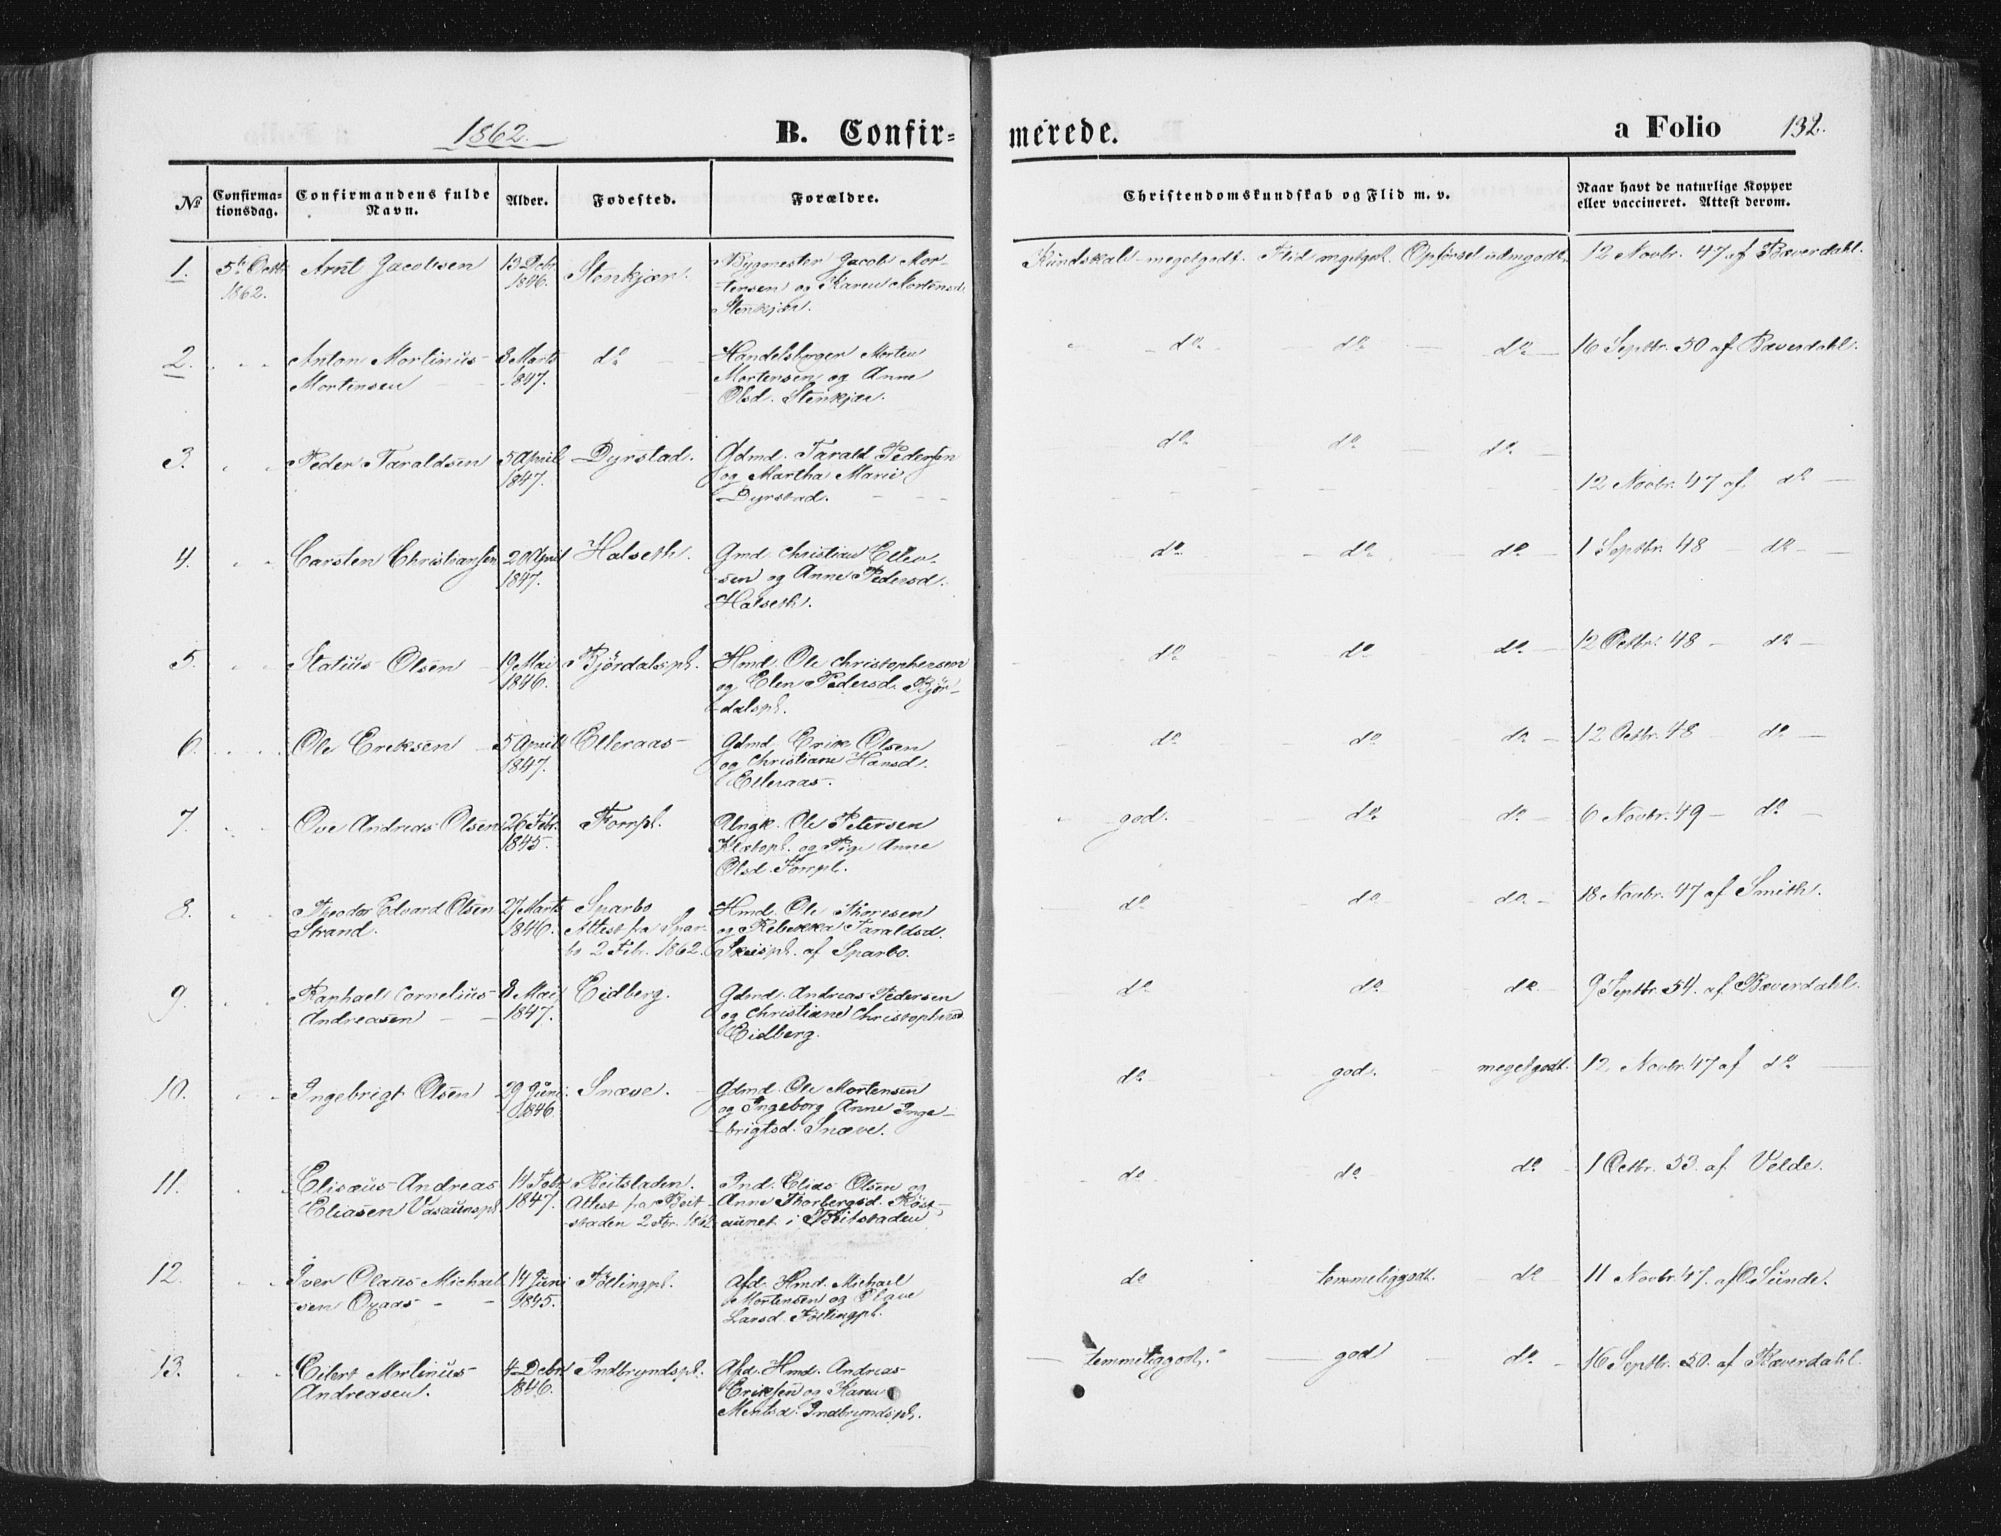 1862.
B. Confir-
merede.
a Folio 132.
No
Confirma-
tionsdag.
Confirmandens fulde
Navn.
Alder.
Fødested.
Forældre.
Christendomskundskab og Flid m. v.
Naar havt de naturlige Kopper
eller vaccineret. Attest derom.
1. 5te Octb. Arnt Jacobsen 13 Debr. Stenkjær. Bygmester Jacob Mor-
1862. 1846. tensen og Karen Mortensd.
Stenkjær.
Kundskab megetgodt. Flid megetgod. Opførsel udmgodt. 12 Novbr. 47 af Bæverdahl.
2. " " Anton Martinus 8 Marts do Handelsborger Morten
Mortensen 1847. Mortensen og Anne
Olsd. Stenkjær.
" do do do 16 Septbr. 50 af Bæverdahl.
3. " " Peder Taraldsen 5 April Dyrstad. Gdmd. Tarald Pedersen
1847. og Martha Marie
Dyrstad.
do do do
12 Novbr. 47 af do
4. " " Carsten Christiansen 20 April Halseth. Gmd. Christian Ellev-
1847. sen og Anne Pedersd.
Halseth.
do do do 1 Septbr. 48 do
5. " " Statius Olsen 19 Mai Bjørdalspl. Hmd. Ole Christophersen
1846. og Elen Pedersd. Bjør-
dalspl.
do do do 12 Octbr. 48 do
6. " " Ole Eriksen 5 April Elleraas Gdmd. Erik Olsen
1847. og Christiane Hansd.
Elleraas.
do do do 12 Octbr. 48 do
7. " " Ove Andreas Olsen 26 Febr. Forrpl. Ungk. Ole Petersen
1845. og Pige Anne
Olsd. Forrpl.
" god. do do 6 Novbr. 49 do
8. " " Theodor Edvard Olsen 27 Marts Sparbo Hmd. Ole Thoresen
Strand. 1846. Attest fra Spar- og Rebekka Taraldsd.
bo 2 Febr. 1862. Skeispl. af Sparbo.
do do do 18 Novbr. 47 af Smith.
9 " " Raphael Cornelius 8 Mai Eidberg. Gdmd. Andreas Pedersen
Andreasen 1847. og Christiane Christophersd.
Eidberg.
do do do 9 Septbr. 54. af Bæverdahl.
10. " " Ingebrigt Olsen 29 Juni Snæve. Gdmd. Ole Mortensen
1846 og Ingeborg Anne Inge-
brigtsd. Snæve.
do god. megetgodt. 12 Novbr. 47 af do
11. " " Elisæus Andreas 14 Febr. Beitstaden. Ind. Elias Olsen og
Eliasen 1847. Attest fra Beit- Anne Thorbergsd. Røst-
staden 2 Febr. 1862 aunet i Beitstaden
do do do 1 Octbr. 53. af Velde.
12. " " Iver Olaus Michael 14 Juni Føllingpl. Afd. Hmd. Michael
sen Oxaas 1845. Mortensen og
Larsd. Føllingpl.
do temmeliggodt. do 11 Novbr. 47. af O. Sunde.
13. " " Eilert Martinus 4 Debr. Indbryndspl. Afd. Hmd. Andreas
Andreasen. 1846. Eriksen og Karen
Mentsd. Indbryndspl.
temmeliggodt. god do 16 Septbr. 50. af Bæverdahl.